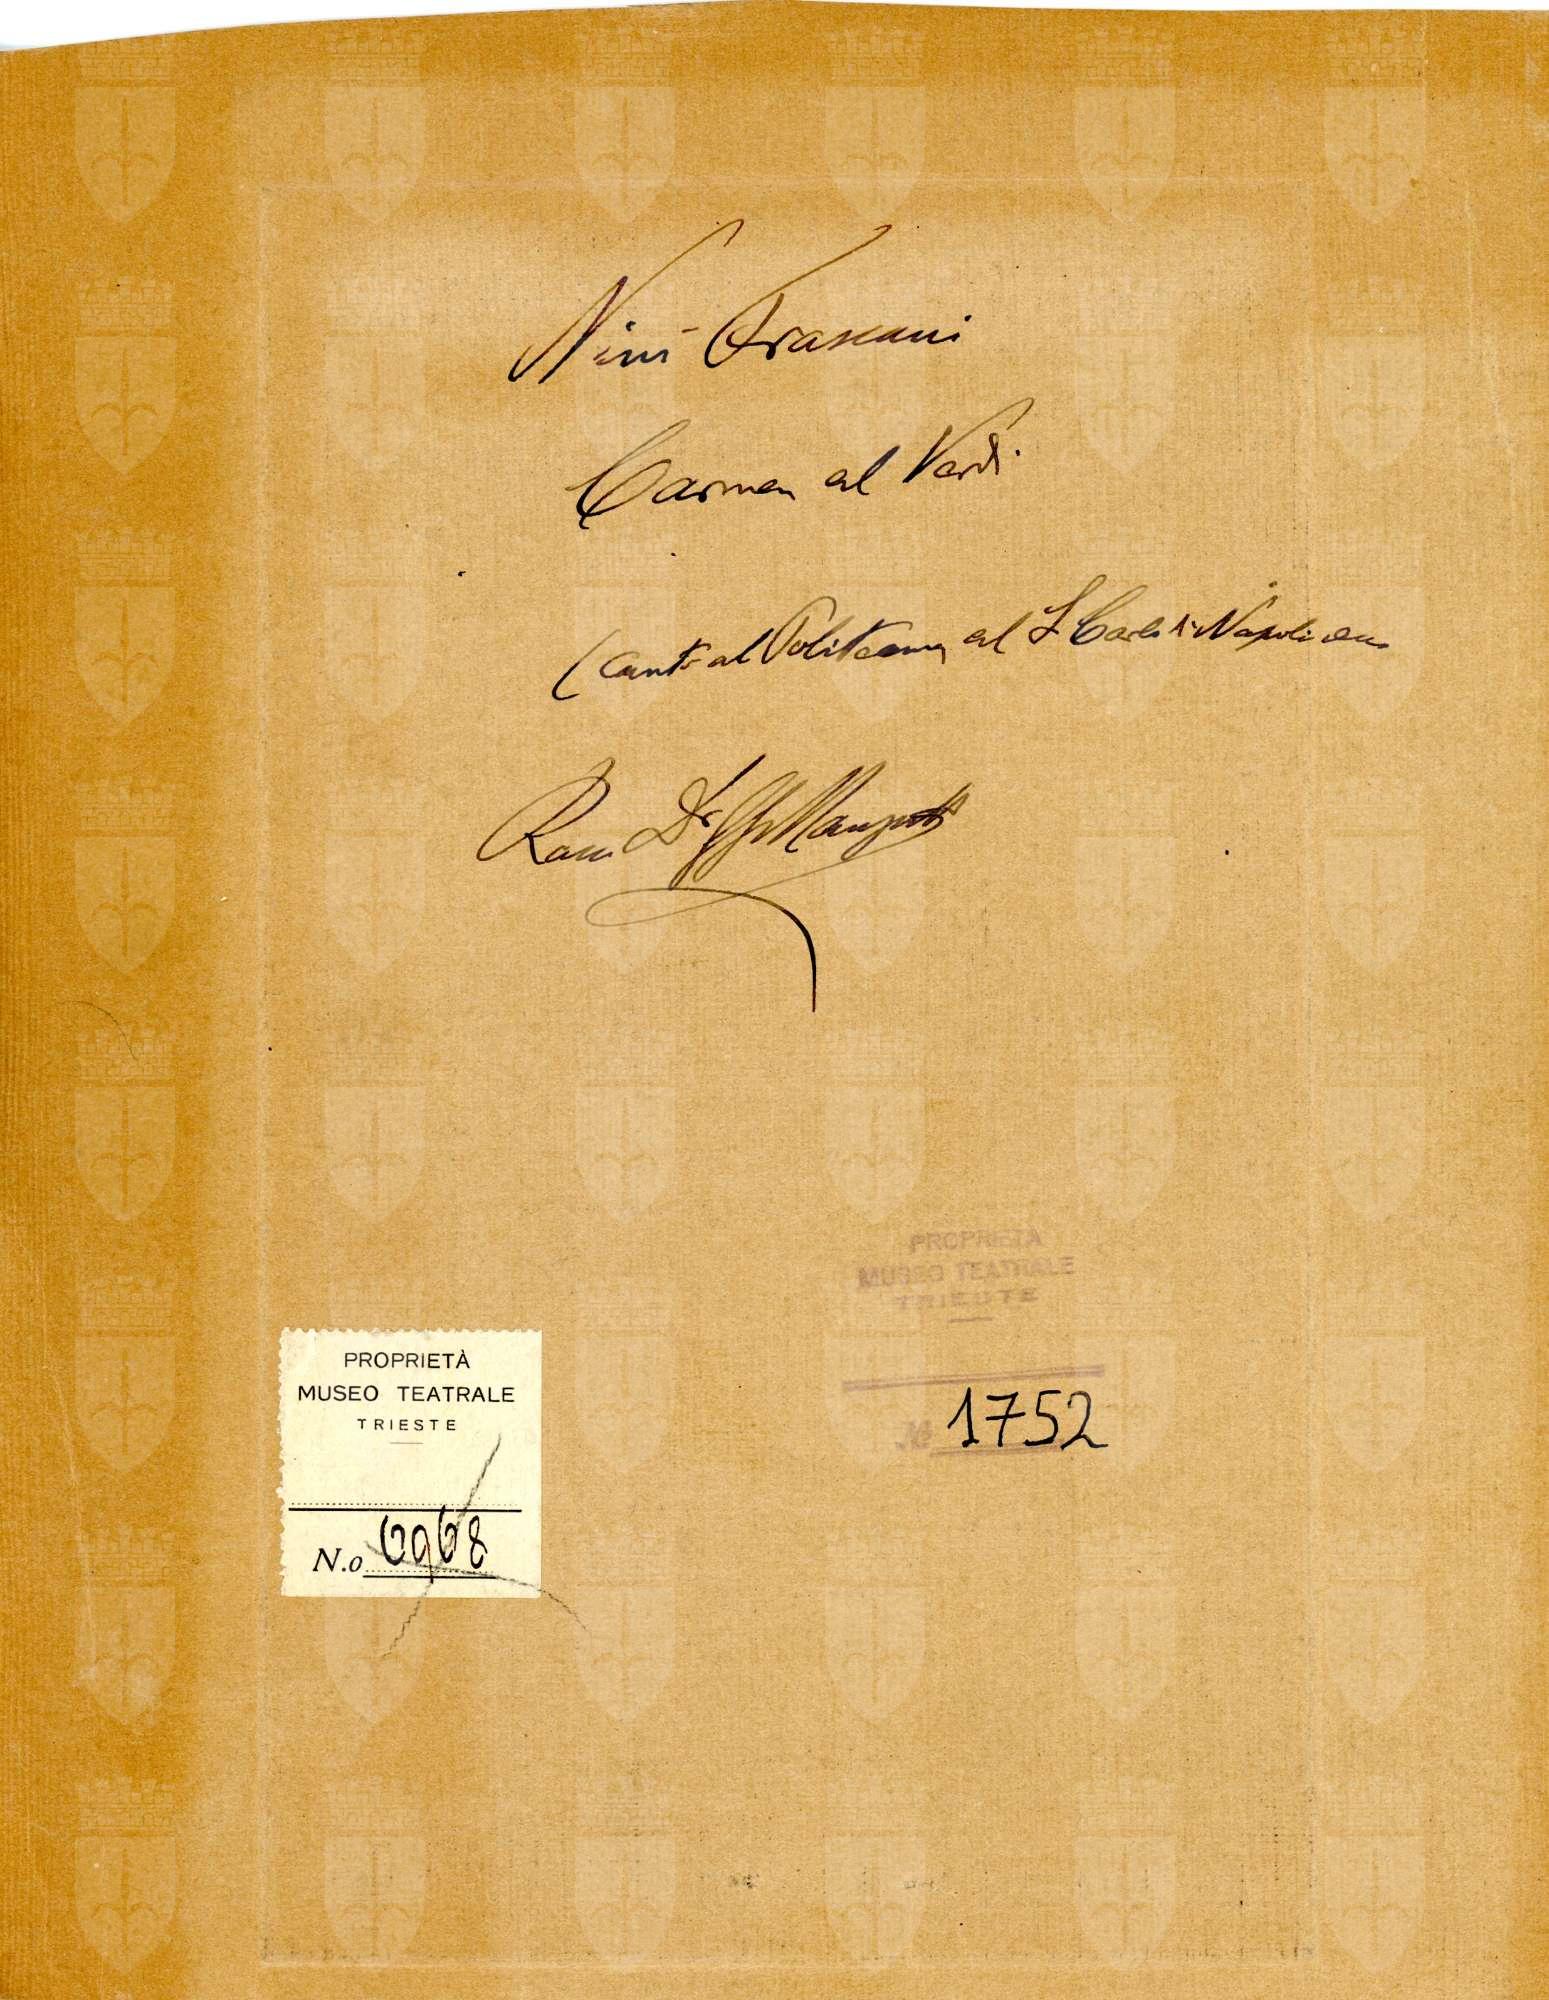 Nini Frascani
Carmen al Verdi
(cantò al Politeama, al S. Carlo di Napoli ecc.
Dr
PROPRIETÀ
MUSEO TEATRALE
TRIESTE
No 1752
PROPRIETÀ
MUSEO TEATRALE
TRIESTE
N.o 6968